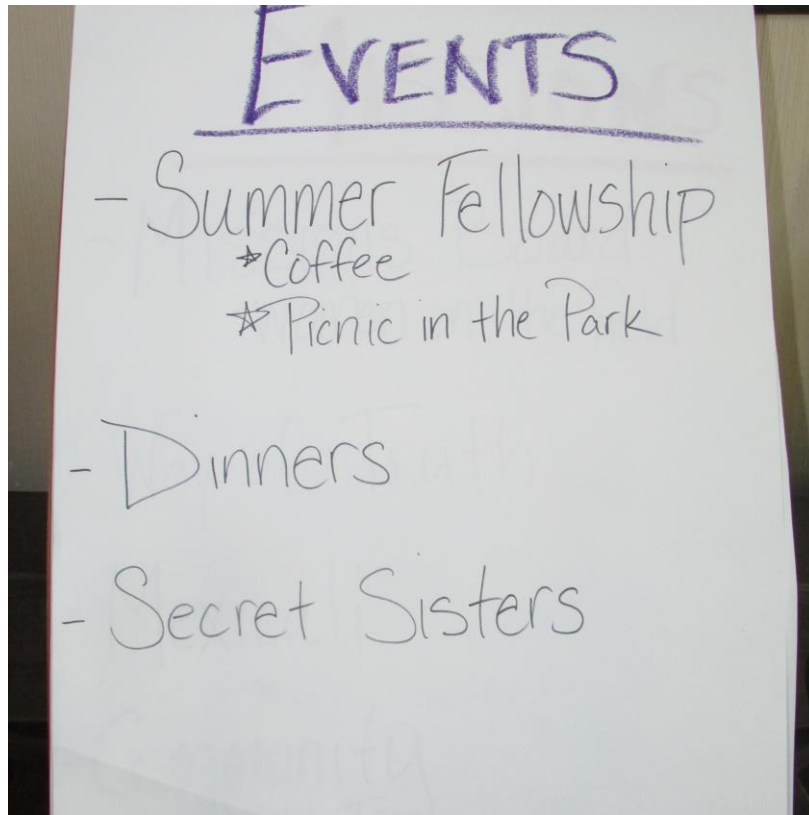 EVENTS
- Summer Fellowship
* Coffee
* Picnic in the Park
- Dinners
- Secret Sisters